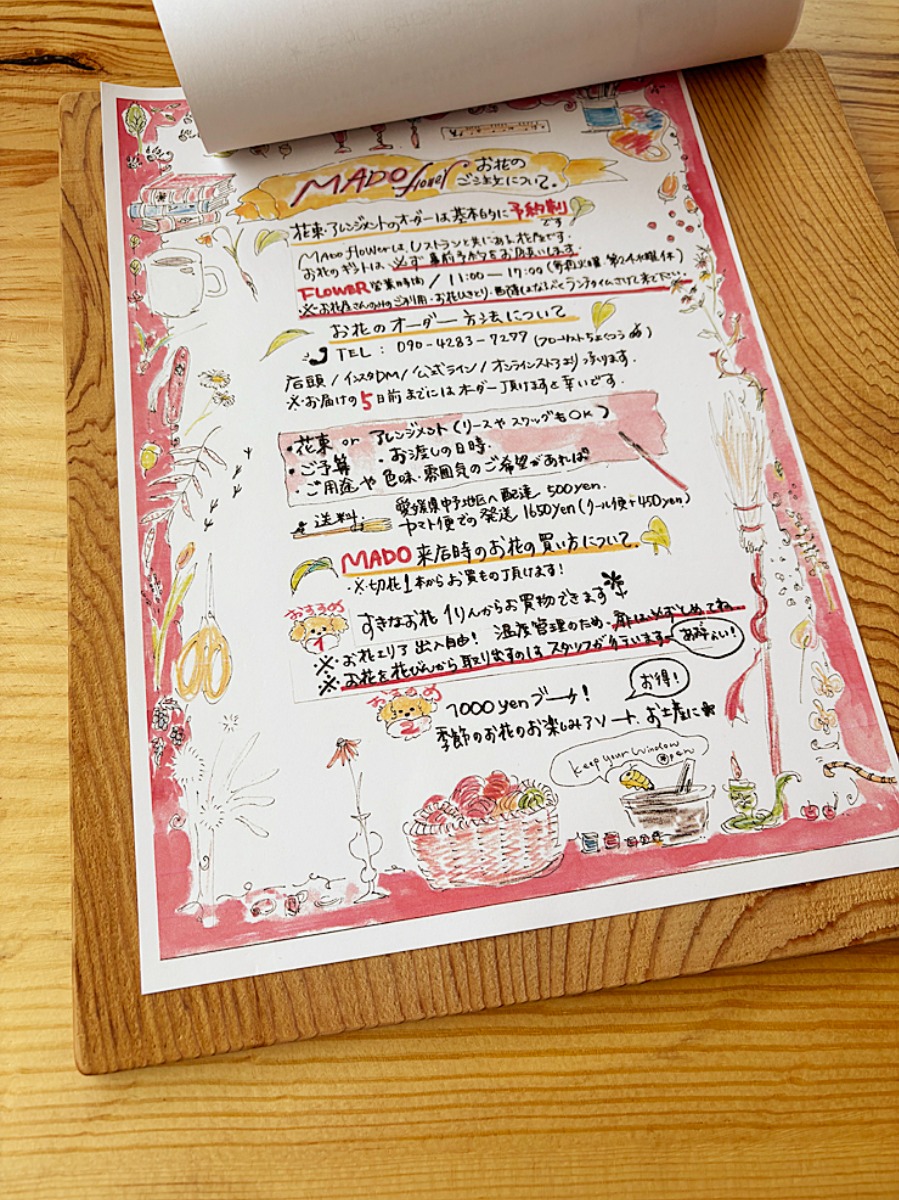 MADO flower お花の
ご注文について。
花束・アレンジメントのオーダーは基本的に予約制
です
MADO flowerは、レストランと共にある花屋です。
お花のギフトは、必ず事前予約をお願いします。
FLOWER 営業時間 / 11:00―17:00 (毎週火曜・第2.4水曜休)
※お花屋さんのみのご利用・お花ひきとり・
ランチタイムさけて来て下さい。
お花のオーダー方法について
TEL : 090-4283-7277
店頭 / インスタDM / 公式ライン / オンラインストアより承ります。
※お届けの5日前までにはオーダー頂けますと幸いです。
・花束 or アレンジメント (リースやスワッグもOK)
・ご予算 ・お渡しの日時.
・ご用途や色味・雰囲気のご希望があれば
送料 愛媛県中予地区へ配達 500yen.
ヤマト便での発送 1650yen (クール便+450yen)
MADO 来店時のお花の買い方について.
※切花1本からお買もの頂けます!
おすすめ
1
すきなお花 1りんからお買物できます
※お花エリア出入自由! 温度管理のため・扉は必ずしめてね.
※お花を花びんから取り出すのはスタッフが行います。
あぶない!
おすすめ
2
1000yenブーケ!
お得!
季節のお花のお楽しみアソート. お土産に
Keep your window open